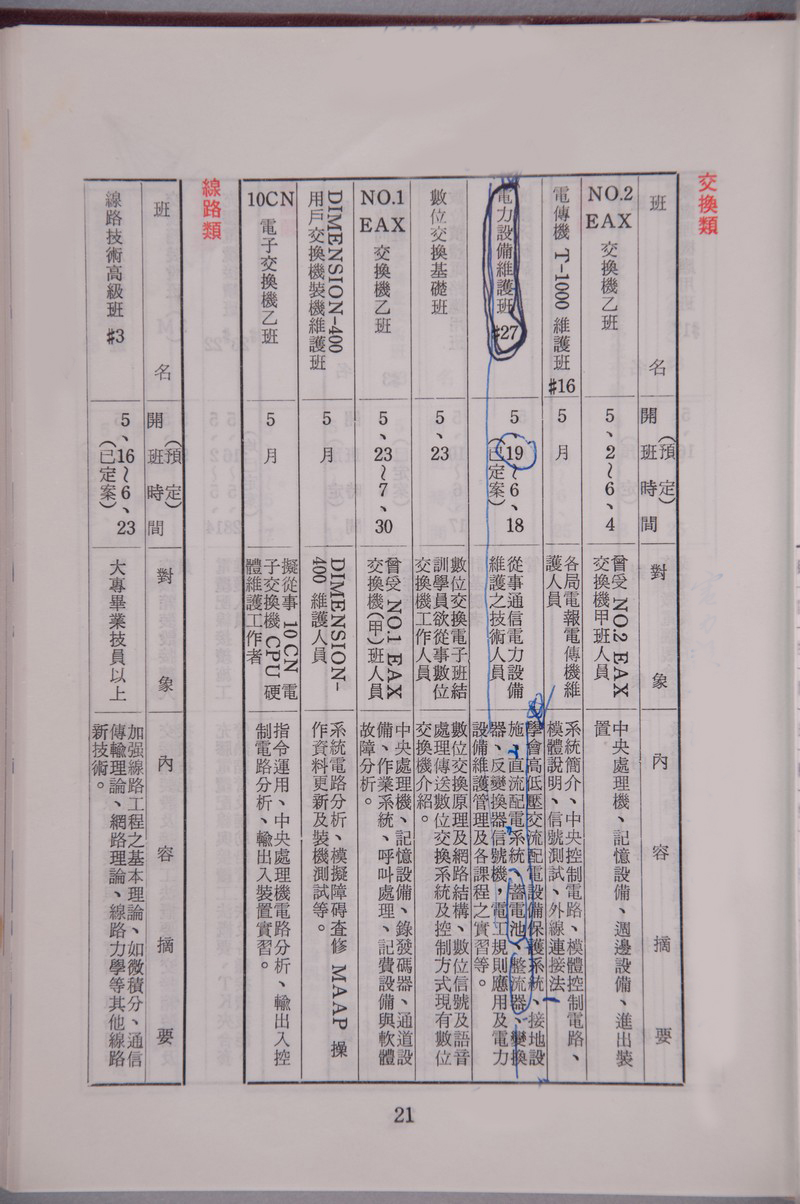 交換類
班名
開班時間(預定)
對象
內容摘要
NO.2 EAX 交換機乙班
5、2～6、4
曾受 NO2 EAX
交換機甲班人員
中央處理機、記憶設備、週邊設備、進出裝
置
電傳機 T-1000 維護班 #16
5月
各局電報電傳機維
護人員
系統簡介、中央控制電路、模體控制電路、
模體說明、信號測試、外線連接法
電力設備維護班 #27
5、19～6、18
(已定案)
從事通信電力設備
維護之技術人員
學會高低壓交流配電設備保護系統、接地設
施、直流配電系統、蓄電池、整流器、變換
器、反變換器信號機，電工規則應用及電力
設備維護管理及各課程之實習等。
數位交換基礎班
5、23
數位交換電子班結
訓學員欲從事數位
交換機工作人員
數位交換原理及網路結構、數位信號及語音
處理傳送數位交換系統及控制方式現有數位
交換機介紹。
NO.1 EAX 交換機乙班
5、23～7、30
曾受 NO.1 EAX
交換機(甲)班人員
中央處理機、記憶設備、錄發碼器、通道設
備、作業系統、呼叫處理、記費設備與軟體
故障分析。
DIMENSION-400
用戶交換機裝機維護班
5月
DIMENSION-
400 維護人員
系統電路分析、模擬障碍查修 MAAP 操
作資料更新及裝機測試等。
10CN 電子交換機乙班
5月
擬從事 10CN 電
子交換機 CPU 硬
體維護工作者
指令運用、中央處理機電路分析、輸出入控
制電路分析、輸出入裝置實習。
線路類
班名
開班時間(預定)
對象
內容摘要
線路技術高級班 #3
5、16～6、23
(已定案)
大專畢業技員以上
加强線路工程之基本理論、如微積分、通信
傳輸理論、網路理論、線路力學等其他線路
新技術。
21